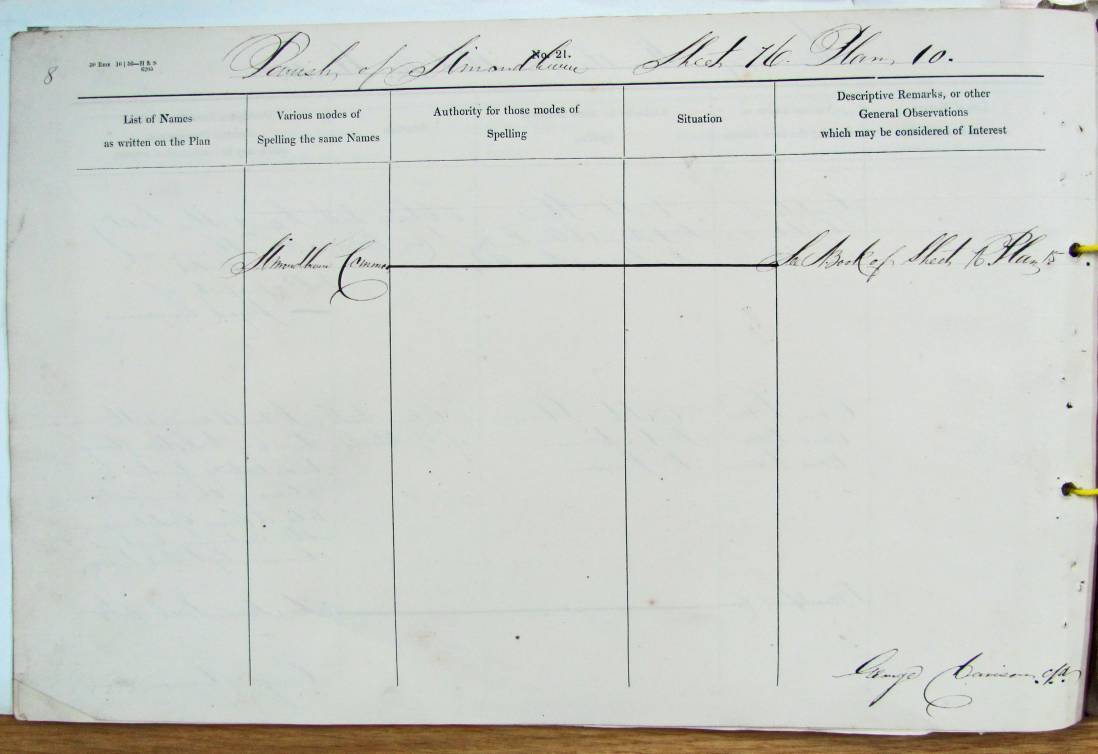 8
No. 21.
Parish of Simondburn Sheet 76. Plan 10.
List of Names
as written on the Plan
Various modes of
Spelling the same Names
Authority for those modes of
Spelling
Situation
Descriptive Remarks, or other
General Observations
which may be considered of Interest
Simondburn Common
See Book of Sheet 76 Plan 15
George